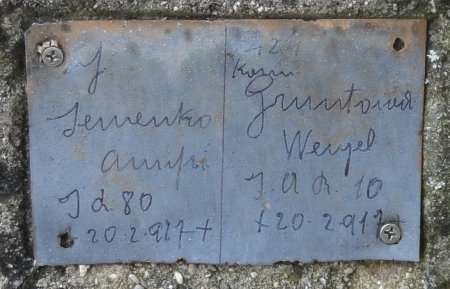 J
Semenko
J d. 80
20.2.917 +
Komm
Gruntowa
Wenzel
J. A R. 10
+ 20.2.917 +